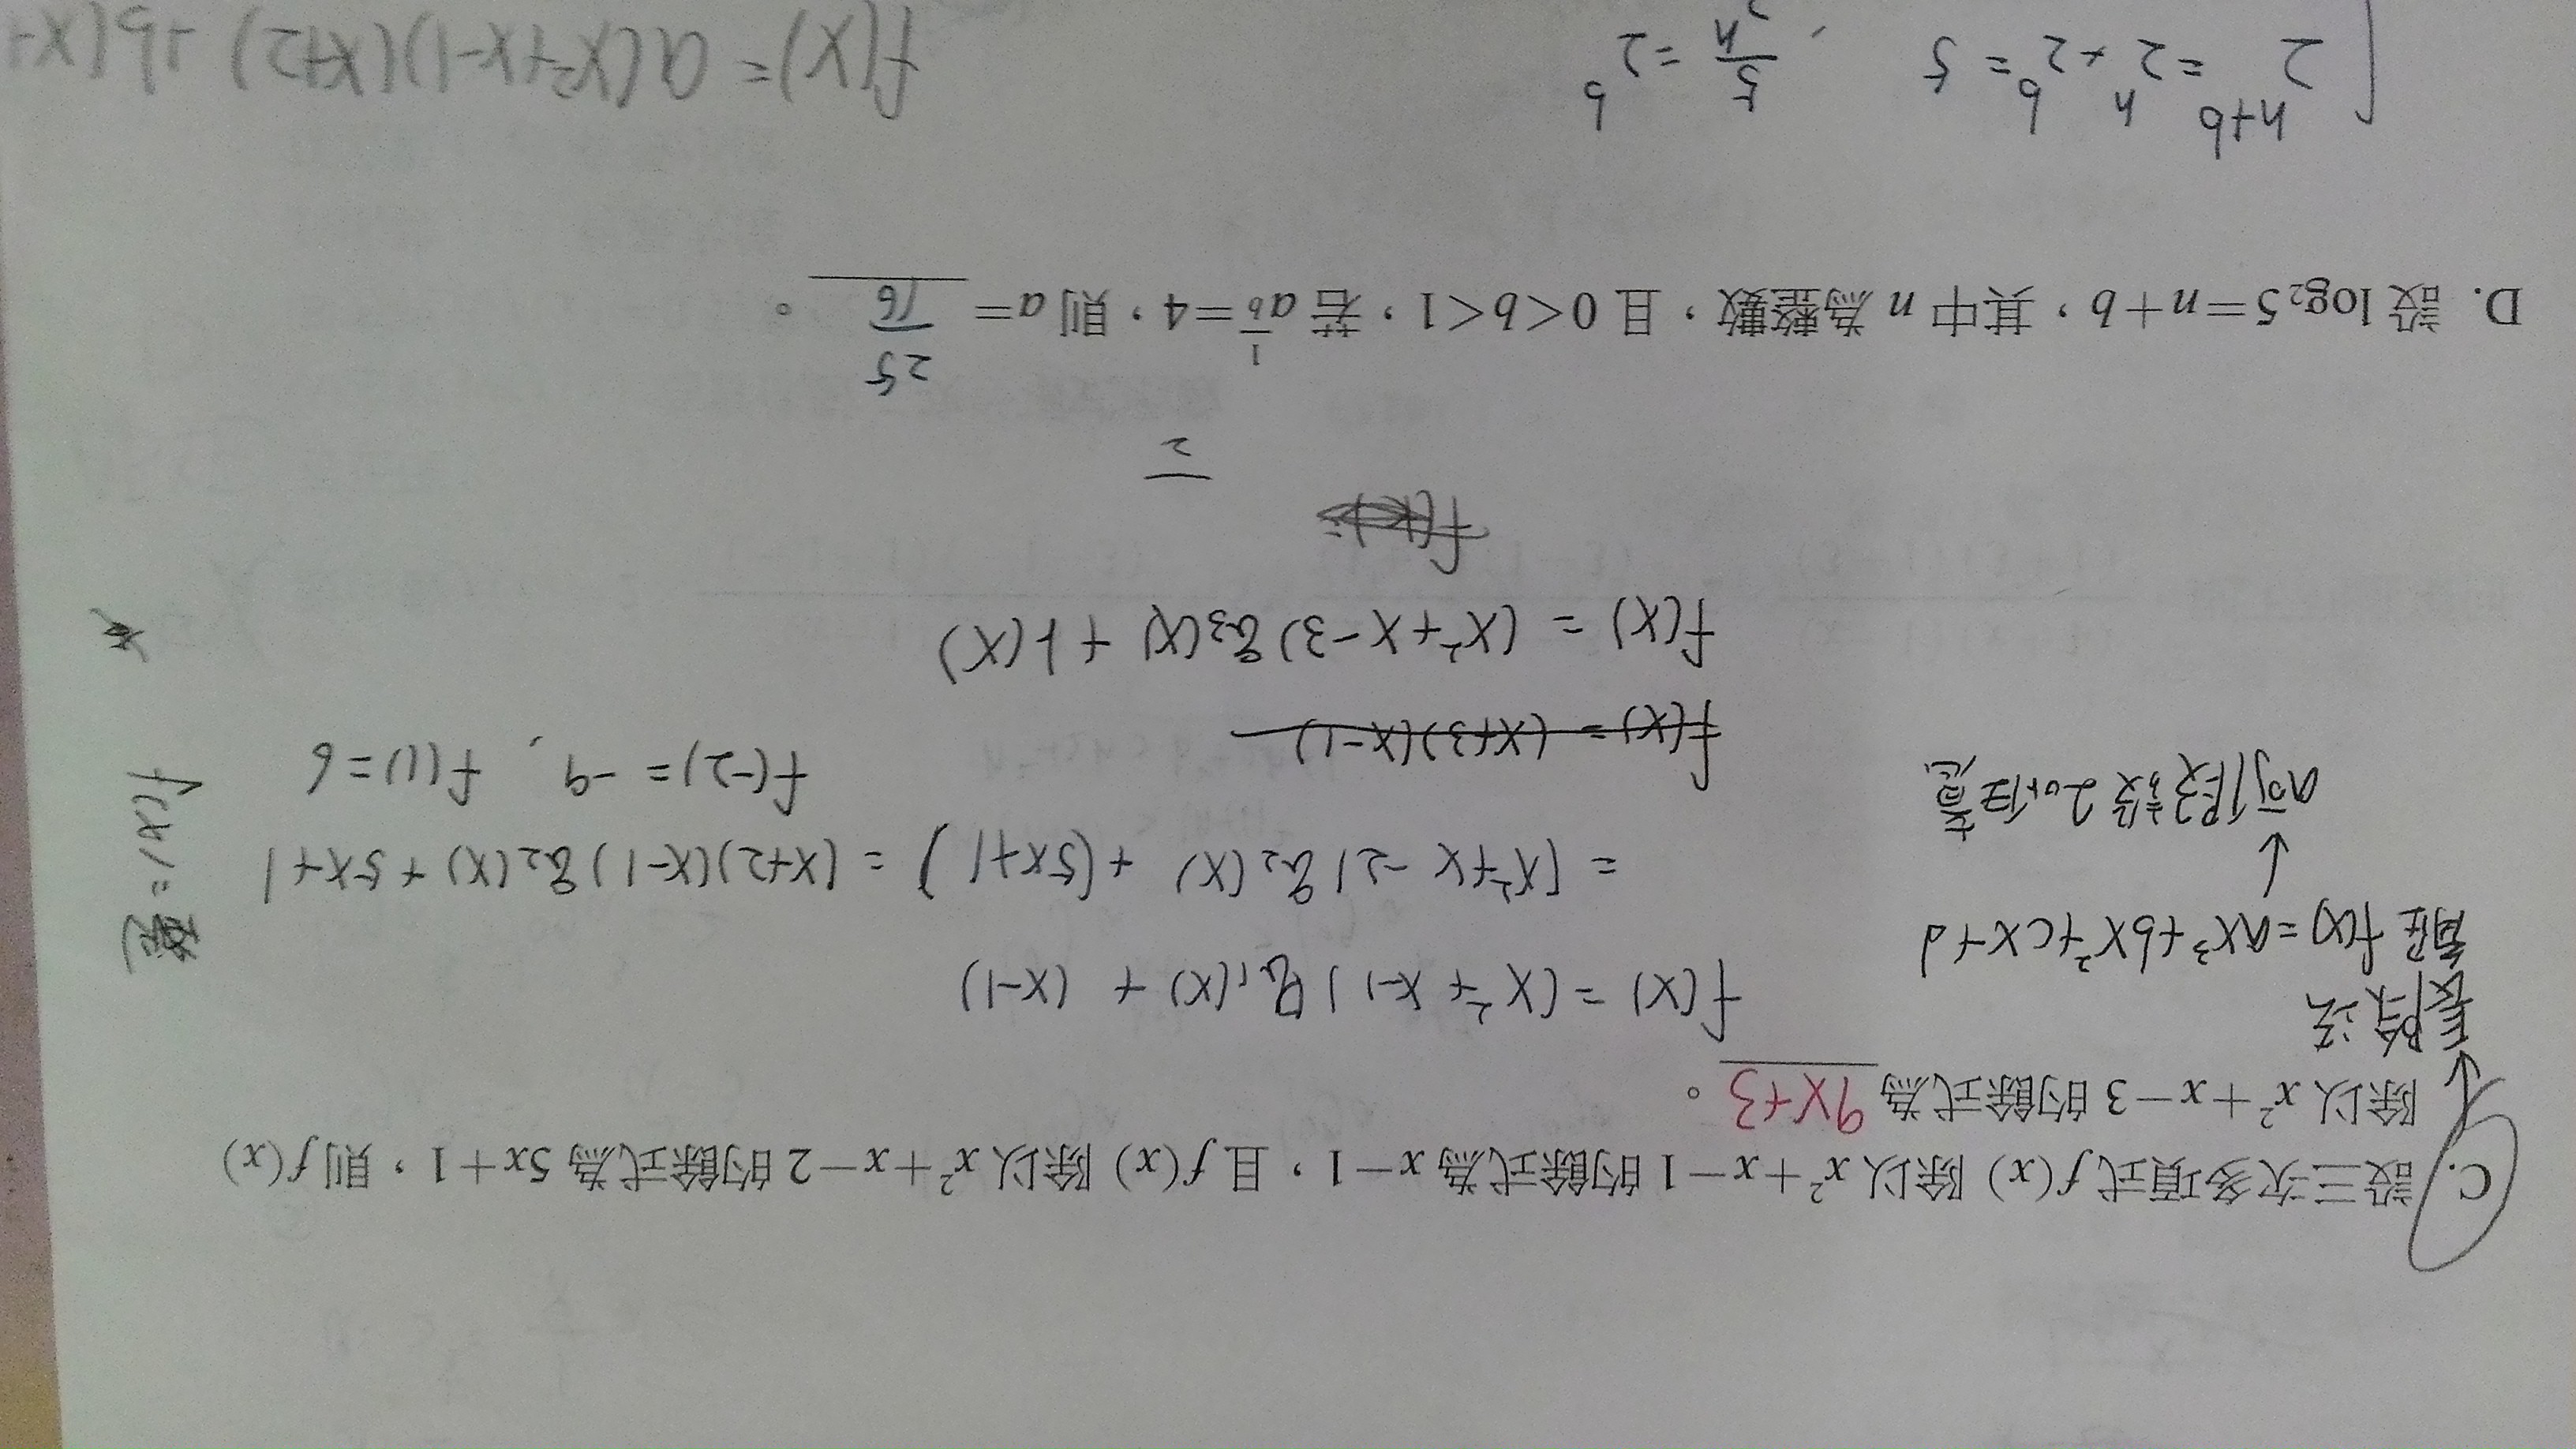 C. 設三次多項式 f(x) 除以 x²+x−1 的餘式為 x−1，且 f(x) 除以 x²+x−2 的餘式為 5x+1，則 f(x)
除以 x²+x−3 的餘式為 9x+3。
長除法
f(x) = (x²+x-1) q₁(x) + (x-1)
f(x)=ax³+bx²+cx+d
= (x²+x-2) q₂(x) + (5x+1) = (x+2)(x-1) q₂(x) + 5x+1
a可假設2or任意
f(-2)= -9, f(1)=6
f(x) = (x+3)(x-1)
f(x) = (x²+x-3) q₃(x) + r(x)
2
D. 設 log₂5=n+b，其中 n 為整數，且 0<b<1，若 a^(1/b)=4，則 a= 25/16。
2^(n+b) = 2^n × 2^b = 5, 5/2^n = 2^b
f(x)= a(x²+x-1)(x+2) + b(x+